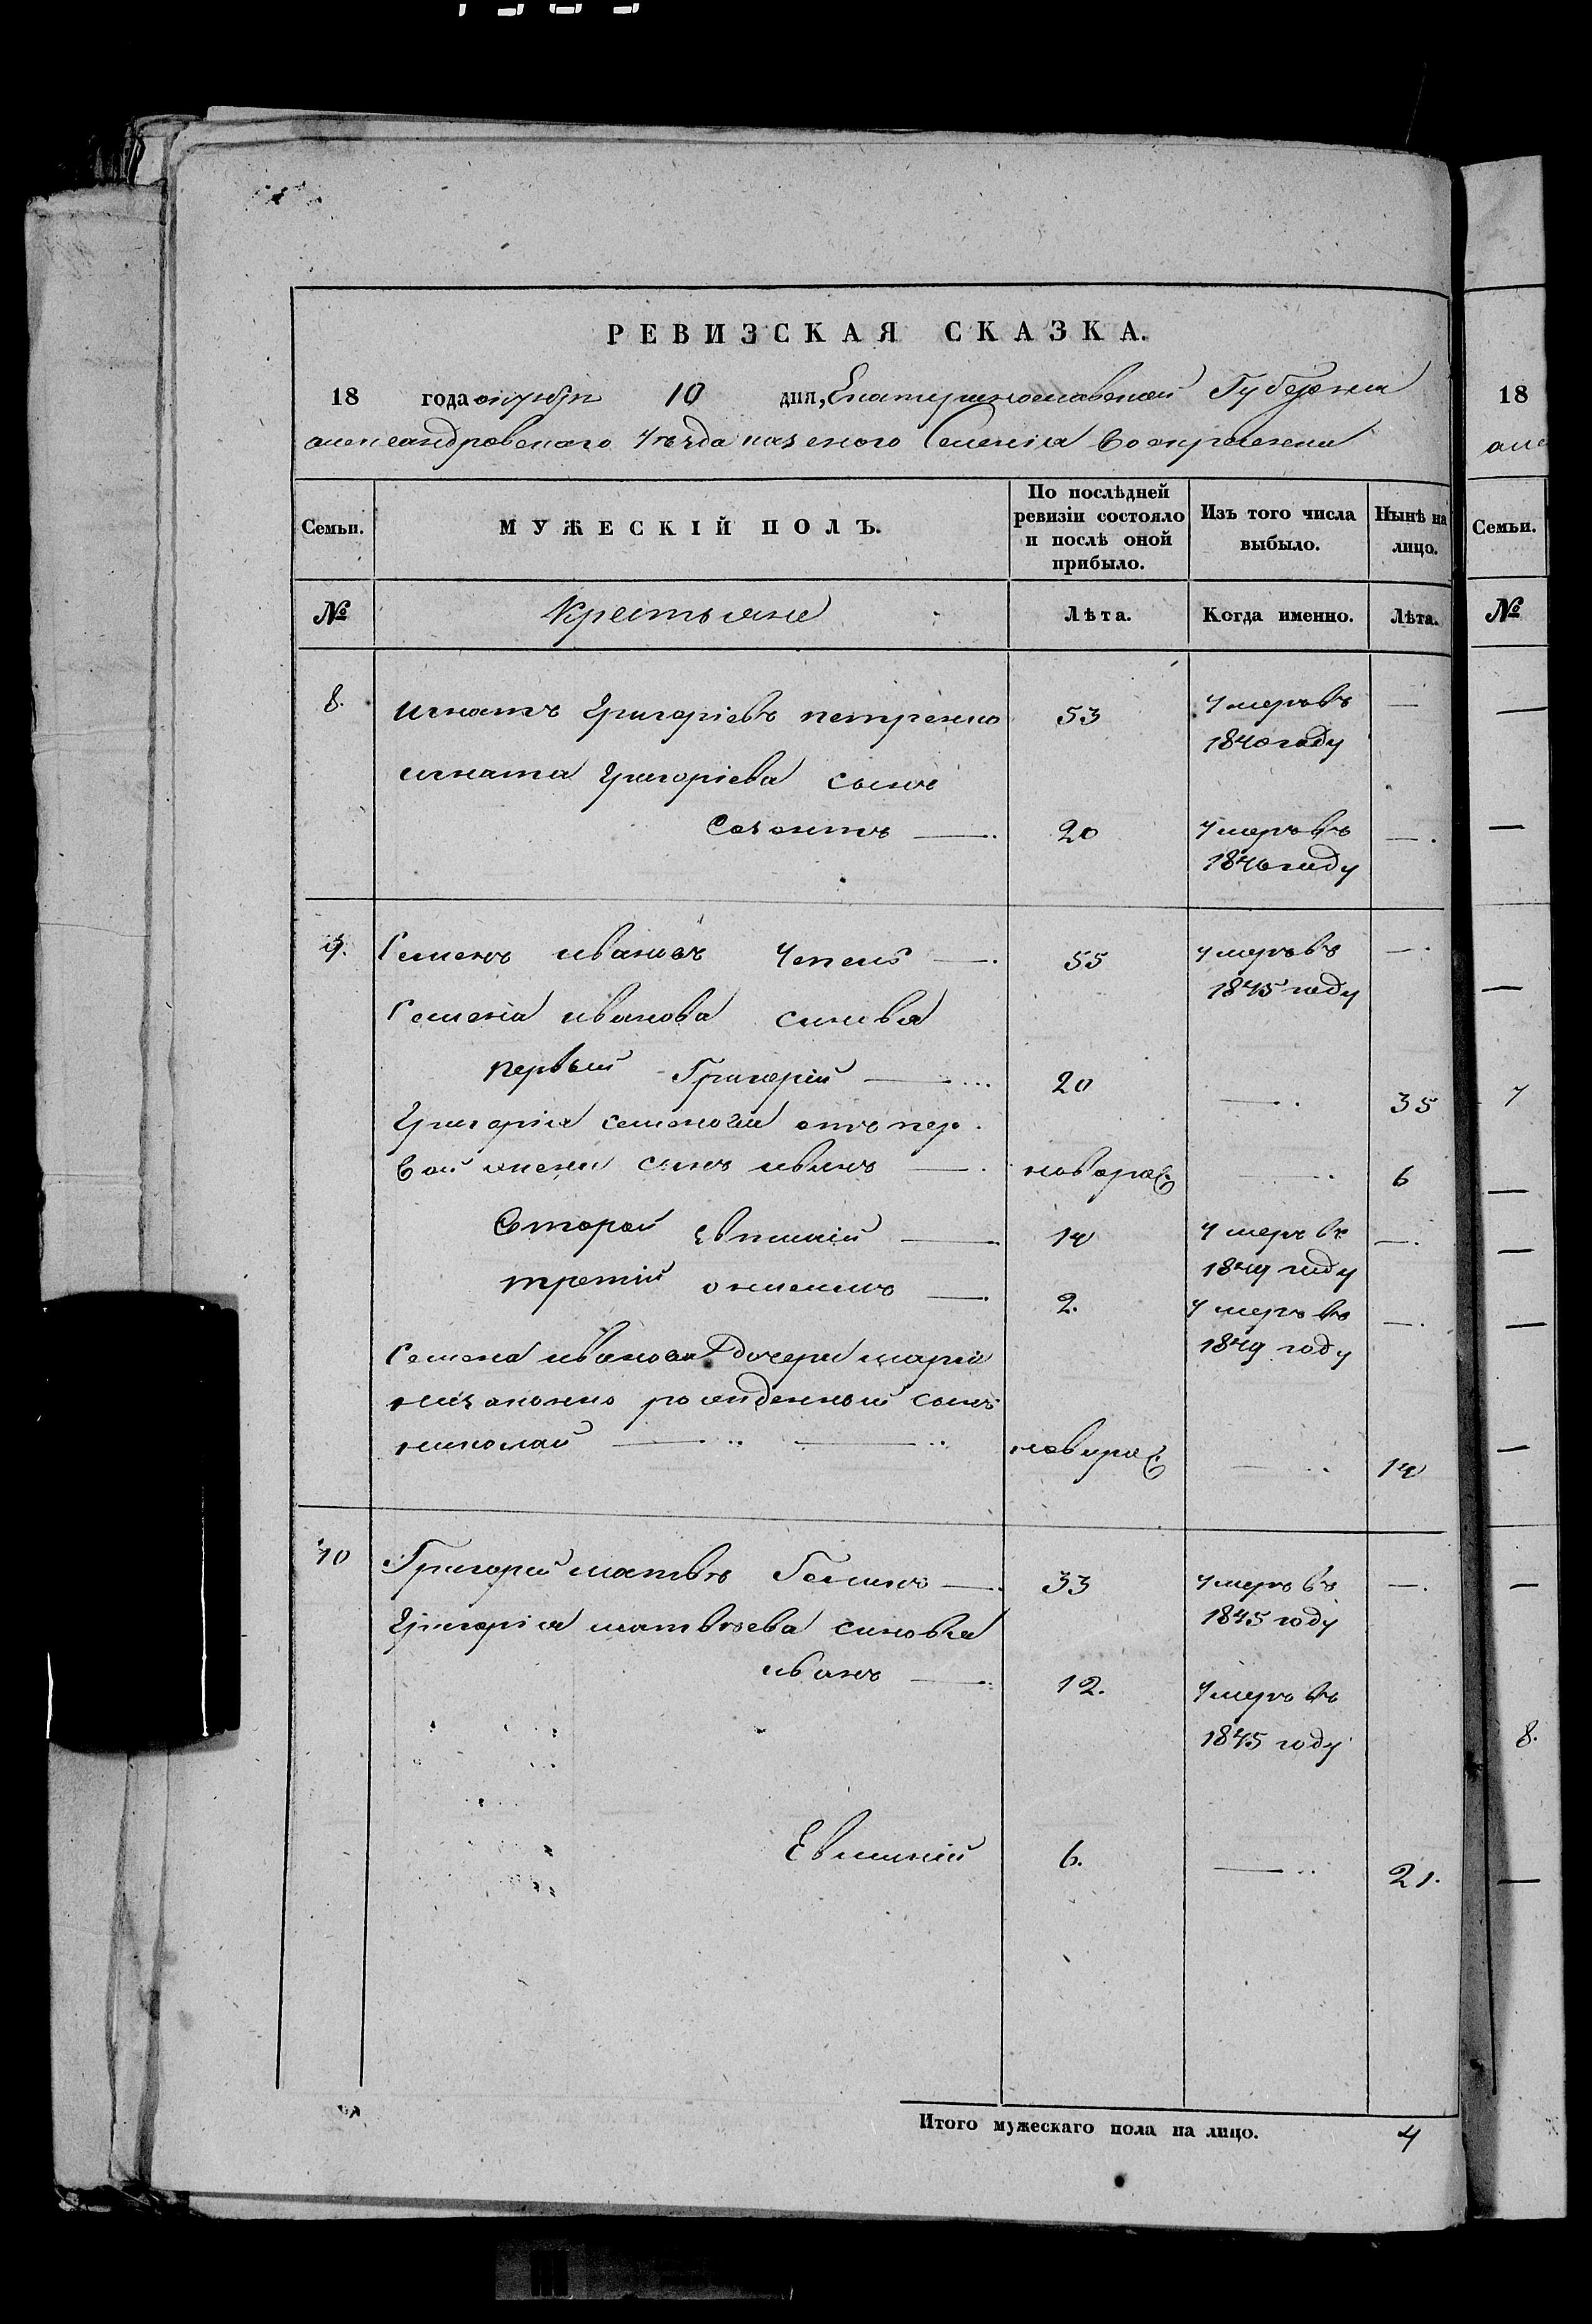 РЕВИЗСКАЯ СКАЗКА.
18 года октября 10 дня, Екатеринославской Губернии
александровского уезда казеного Селения Воскресенки
Семьи.
МУЖЕСКІЙ ПОЛЪ.
По послѣдней ревизіи состояло и послѣ оной прибыло.
Изъ того числа выбыло.
Нынѣ на лицо.
№
Крестьяне
Лѣта.
Когда именно.
Лѣта.
8. игнатъ Григоріевъ петренко 53 умеръ въ —
1840 году
игната Григоріева сынъ
Созонтъ —. 20 умеръ въ —.
1840 году
9. Семенъ ивановъ Чепель —. 55 умеръ въ —.
1845 году
Семена иванова синовья
первый Григорій — 20 —. 35
Григорія семенова отъ пер
вой жены синъ иванъ —. новорож. —. 6
второй Евтихій — 14 умеръ въ —.
1849 году
третій —. 2. умеръ въ —.
1849 году
Семена иванова дочери маріи
незаконно рожденный сынъ
николай — новорож. —. 14
10 Григорій матвѣевъ —. 33 умеръ въ —.
1845 году
Григорія матвѣева синовья
иванъ —. 12. умеръ въ
1845 году
6. —.. 21.
Итого мужескаго пола на лицо. 4
18
але
Семьи.
№
7
8.